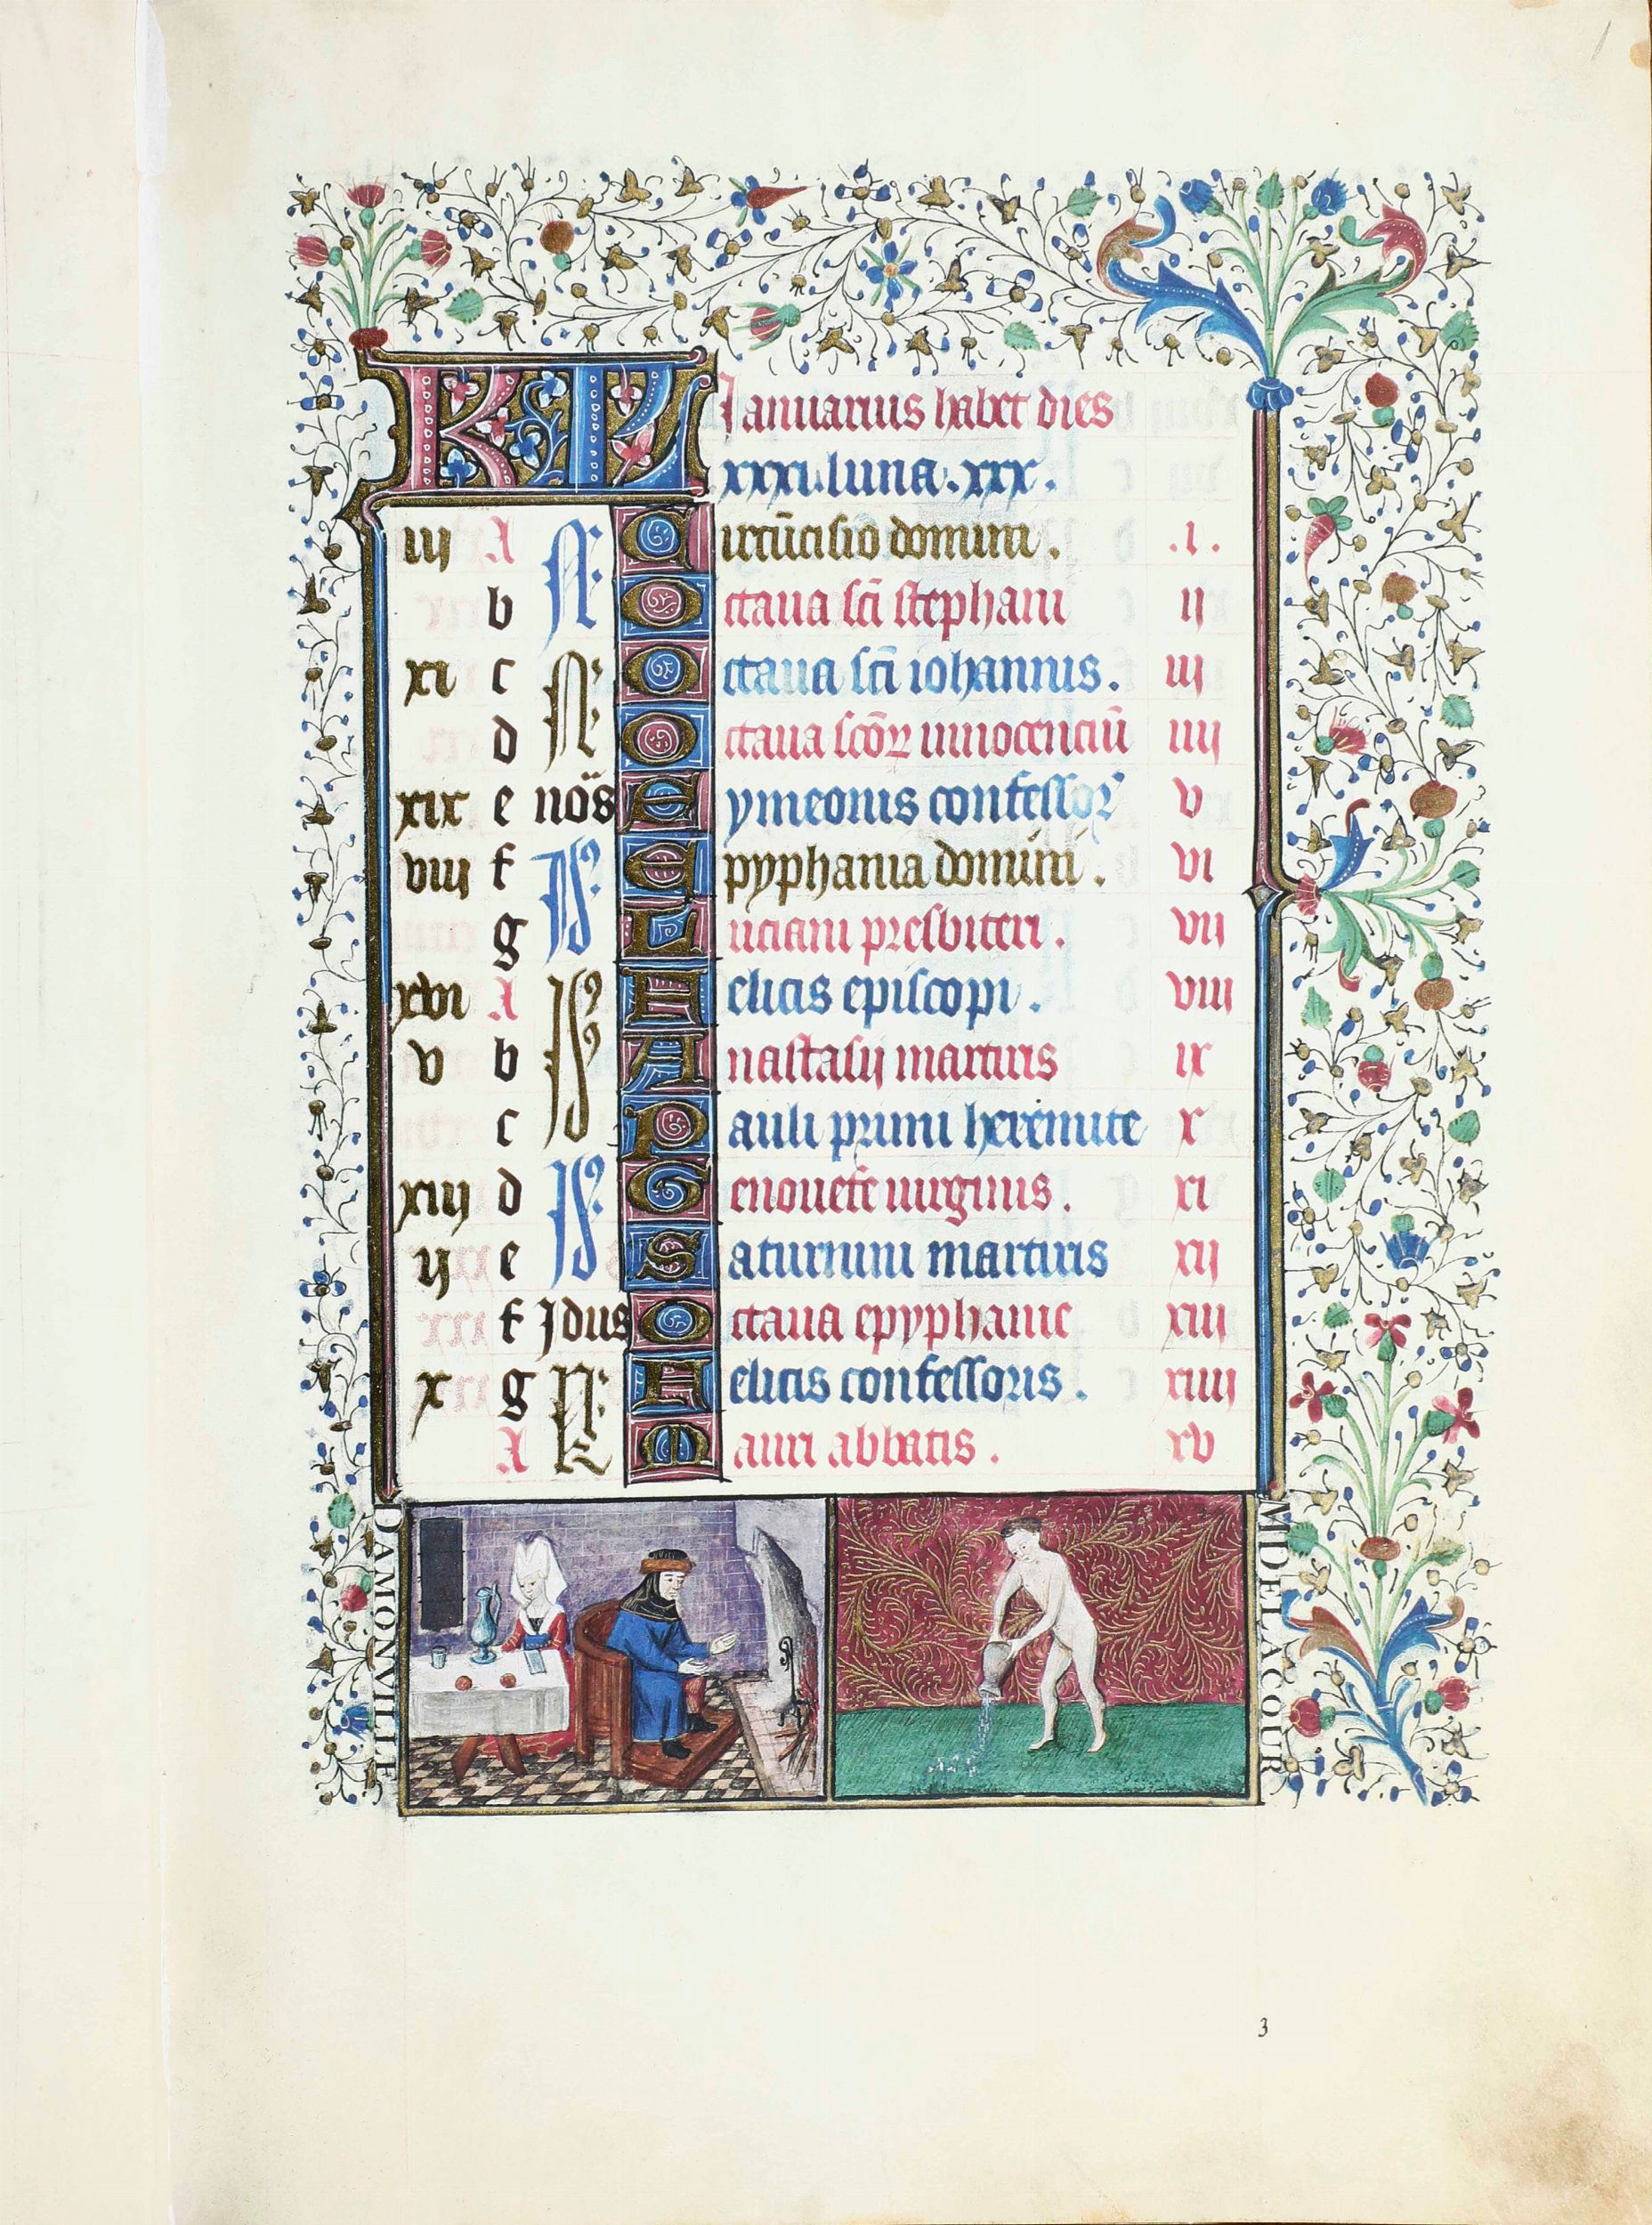 KL Januarius habet dies
xxxi. luna. xxx.
iii A N. Circūcisio domini . .i.
b Octaua sc̄i stephani ii
xi c N. Octaua sc̄i iohannis. iii
d Octaua sc̄oꝝ innocenciū iiii
xix e nōs Symeonis confessoꝝ v
viii f Id9 Epyphania domini . vi
g Luciani presbiteri . vii
xvi A Id9 Felicis episcopi . viii
v b Anastasij martiris ix
c Pauli primi heremite x
xiii d Id9 Genouefe uirginis . xi
ij e Saturnini martiris xij
f Idus Octaua epyphanie xiii
x g N. Felicis confessoris . xiiii
A K Mauri abbatis . xv
DAMONVILLE
MDELACOUR
3